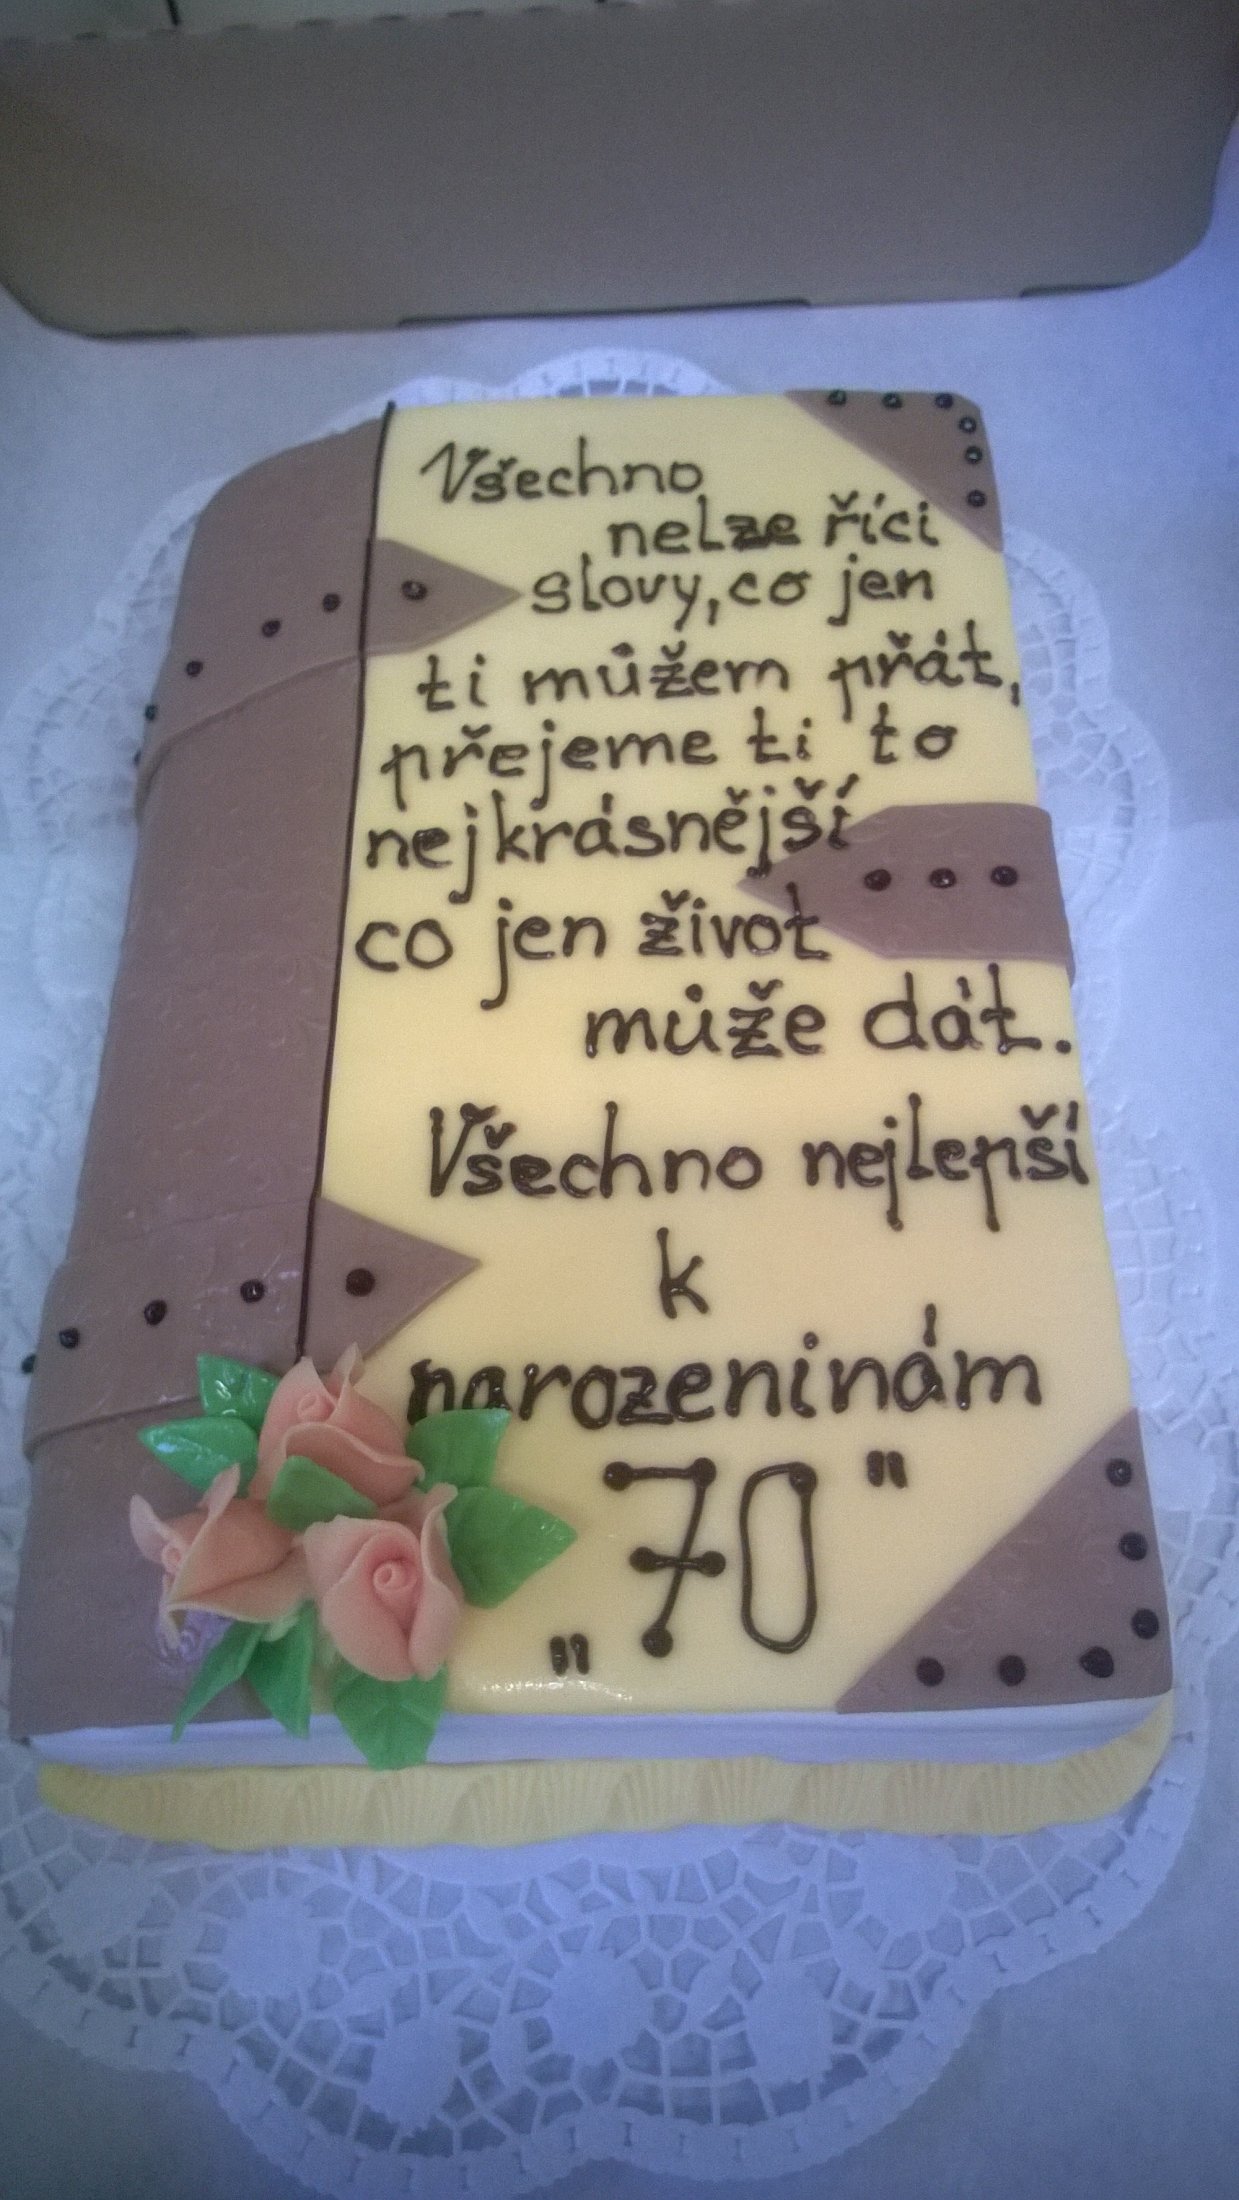 Všechno
nelze říci
slovy, co jen
ti můžem přát,
přejeme ti to
nejkrásnější
co jen život
může dát.
Všechno nejlepší
k
narozeninám
„70"